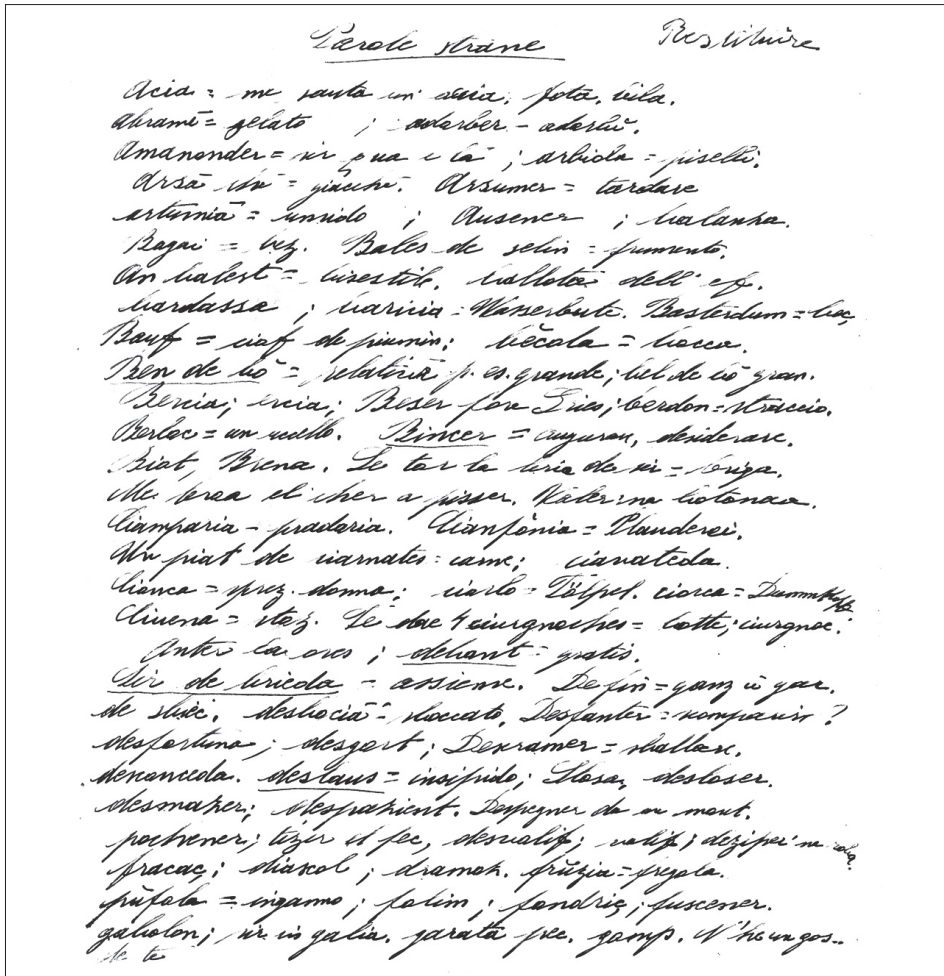 Parole strane Restituire
Acia = me sauta un' acia, fota, bila.
Abramè = gelato ; adorber - adorbù.
Amanonder = ir qua e là ; arbiola = piselli.
Arsà = giacché. Arsumer = tardare
arturnià = umido ; Ausener ; balanza.
Bagai = bez. Bales de selin = frumento.
An balest = bisestile. ballota dell'
bardassa ; baricia = Wasserbute. Basterdum =
Bauf = de piumin ; bècola = bocca.
Ben de bò = relativa p. es. grande ; bel de bò gran.
Bercia ; ercia ; Beser fora ; berdon = straccio.
Berloc = un uccello. Bincer = augurare, desiderare.
Biat, Brena. Se tor la bria de ir = briga.
Me broa el cher a pisser. Katerina botonaa.
Ciamparia - pradaria. Cianfònia = Plauderei.
Un piat de ciarnates = carne ; ciavateda.
Cionca = sprez. donna ; ciorlo = Tölpel. ciorca =
Ciuena = staz. Se dae 4 = botte ;
Anter la ores ; debant = gratis.
Sir de brieda = assieme. De fin = ganz u gar.
de sbiec. desbocià = sboccato. Desfanter = scomparir ?
desfortuna ; desgort ; Descramer = sballare.
desconceda. deslaus = insipido ; desloser.
desmazer ; despazient. Despegner da un mont.
pochener ; tizer el fec, desvalif ; valif ; dezipei
fracaç ; diascol ; dramoz. frùzia = fregola.
pùfola = inganno ; folim ; fondriç ; fuscener.
gabolon ; ir in galia. garatà fec. gomp. N'he un gos..
de te